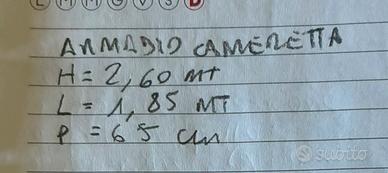 L M M G V S D
ARMADIO CAMERETTA
H = 2,60 MT
L = 1,85 MT
P = 65 cm
subito